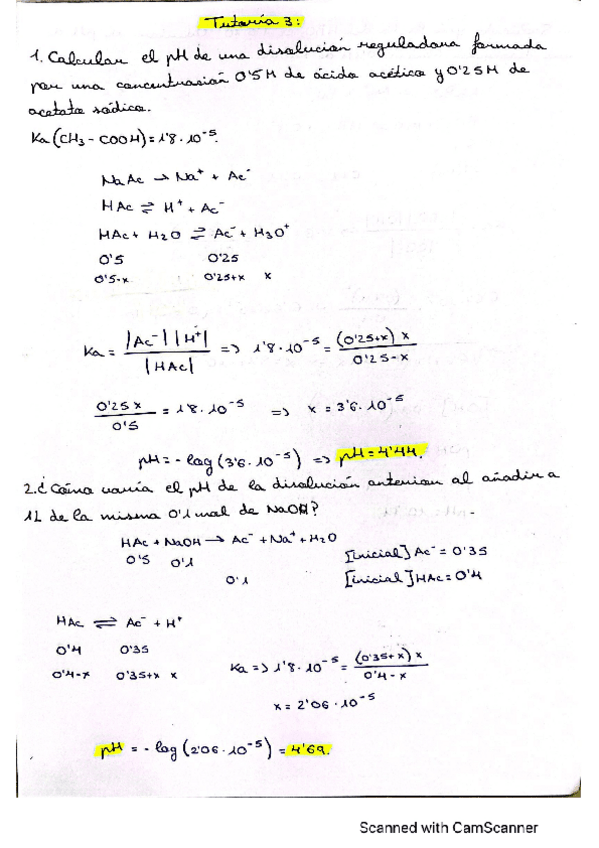 Tutoría 3:
1. Calcular el pH de una disolución reguladora formada
por una concentrasión 0'5M de ácido acético y 0'25M de
acetato sódico.
Ka (CH3 - COOH) = 1'8 · 10^-5.
NaAc → Na+ + Ac-
HAc ⇌ H+ + Ac-
HAc + H2O ⇌ Ac- + H3O+
0'5 0'25
0'5-x 0'25+x x
Ka = |Ac-| |H+| / |HAc| => 1'8 · 10^-5 = (0'25+x) x / 0'25-x
0'25 x / 0'5 = 1'8 · 10^-5 => x = 3'6 · 10^-5
pH = - log (3'6 · 10^-5) => pH = 4'44.
2. ¿Cómo varía el pH de la disolución anterior al añadir a
1L de la misma 0'1 mol de NaOH?
HAc + NaOH → Ac- + Na+ + H2O
0'5 0'1 [inicial] Ac- = 0'35
0'1 [inicial] HAc = 0'4
HAc ⇌ Ac- + H+
0'4 0'35
0'4-x 0'35+x x
Ka => 1'8 · 10^-5 = (0'35+x) x / 0'4-x
x = 2'06 · 10^-5
pH = - log (2'06 · 10^-5) = 4'69.
Scanned with CamScanner